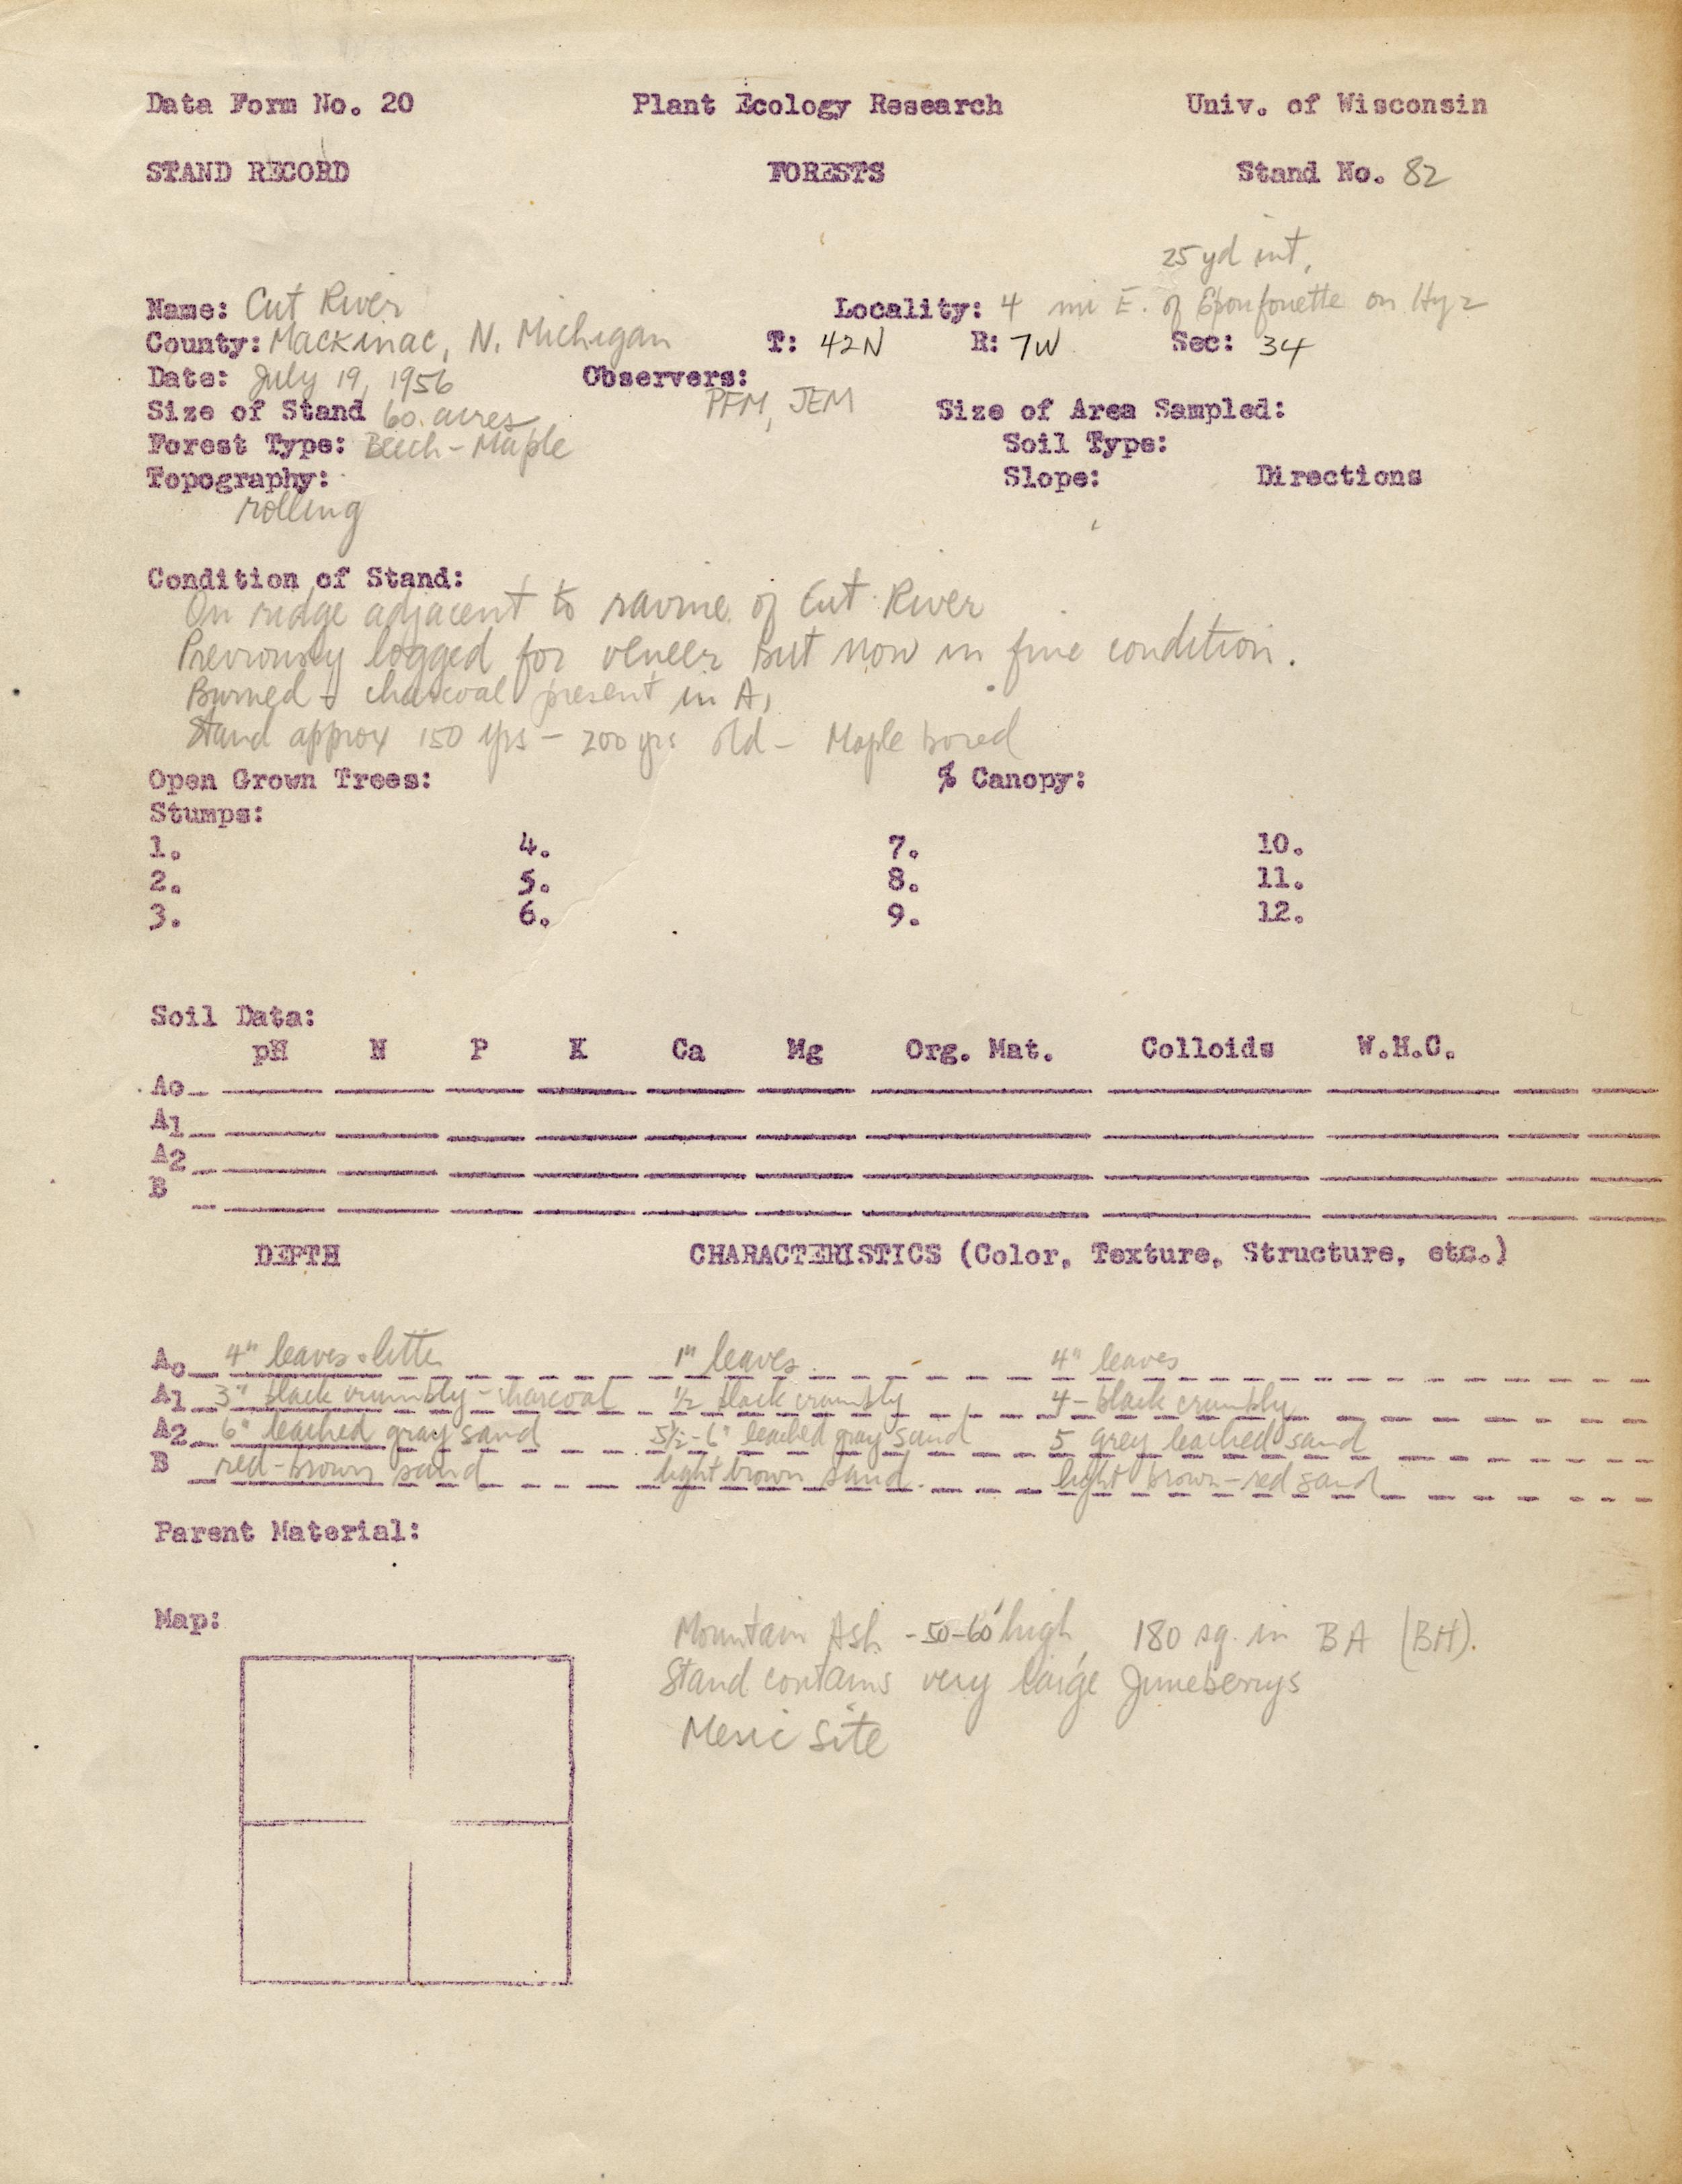 Data Form No. 20 Plant Ecology Research Univ. of Wisconsin
STAND RECORD FORESTS Stand No. 82
25 yd int.
Name: Cut River Locality: 4 mi E. of Epoufouette on Hy 2
County: Mackinac, N. Michigan T: 42N R: 7W Sec: 34
Date: July 19, 1956 Observers:
PFM, JEM
Size of Stand 60 acres Size of Area Sampled:
Forest Type: Beech-Maple Soil Type:
Topography: Slope: Directions
rolling
Condition of Stand:
On ridge adjacent to ravine of Cut River
Previously logged for veneer but now in fine condition.
Burned - charcoal present in A1
Stand approx 150 yrs - 200 yrs old - Maple bored
Open Grown Trees: % Canopy:
Stumps:
1. 4. 7. 10.
2. 5. 8. 11.
3. 6. 9. 12.
Soil Data:
pH N P K Ca Mg Org. Mat. Colloids W.H.C.
Ao
A1
A2
B
DEPTH CHARACTERISTICS (Color, Texture, Structure, etc.)
Ao 4" leaves + litter 1" leaves 4" leaves
A1 3" black crumbly - charcoal 1/2 black crumbly 4 - black crumbly
A2 6" leached gray sand 5 1/2 - 6" leached gray sand 5 grey leached sand
B red-brown sand light brown sand light brown-red sand
Parent Material:
Map:
Mountain Ash - 50-60' high 180 sq. in BA (BH).
Stand contains very large Juneberrys
Mesic Site